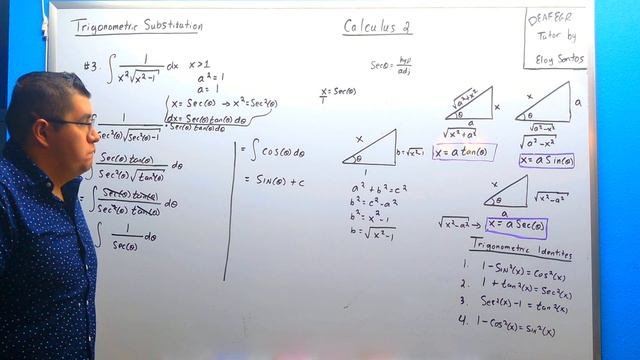 Trigonometric Substitution
Calculus 2
DEAFEGR
Tutor by
Eloy Santos
#3. ∫ 1/(x²√(x²-1)) dx x>1
a² = 1
a = 1
x = Sec(θ) → x² = Sec²(θ)
dx = Sec(θ)tan(θ)dθ
1/(Sec²(θ)√(Sec²(θ)-1)) · Sec(θ)tan(θ)dθ
Sec(θ)tan(θ)/(Sec²(θ)√(tan²(θ))) dθ
= ∫ Sec(θ)tan(θ)/(Sec²(θ)tan(θ)) dθ
∫ 1/Sec(θ) dθ
= ∫ cos(θ)dθ
= Sin(θ) + c
Secθ = hyp/adj
x/1 = Sec(θ)
x
b = √(x²-1)
θ
1
a² + b² = c²
b² = c² - a²
b² = x² - 1
b = √(x²-1)
√(a²+x²)
x
θ
a
√(x²+a²)
x = a tan(θ)
x
a
θ
√(a²-x²)
√(a²-x²)
x = a Sin(θ)
x
√(x²-a²)
θ
a
√(x²-a²) → x = a Sec(θ)
Trigonometric Identites
1. 1-Sin²(x) = Cos²(x)
2. 1 + tan²(x) = Sec²(x)
3. Sec²(x) - 1 = tan²(x)
4. 1-Cos²(x) = Sin²(x)